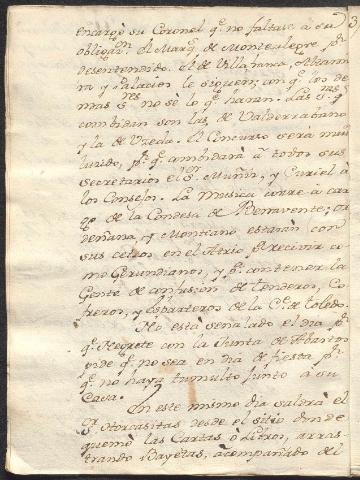 encargò su Coronel q.e no faltase à su
obligac.on El Marq.s de Montealegre p.r
desentendido. El de Villafranca,
y Palacios le siguen; con q.e los de
mas S.res no sè lo q.e haran. Las S.ras q.e
combidan son las de Valderrabano
y la de Uzeda. El Concurso serà mui
lucido, p.r q.e combidarà à todos sus
secretarios el S.r Muñiz, y Curiel à
los Consejos. La Musica corre à car
go de la Condesa de Benavente;
deñana, y Montiano estaràn con
sus cetros en el Atrio à recivir co
mo Gerundianos, y p.a contener la
Gente de confusion de tenderos, Co
freros, y esparteros de la C.e de Toledo.
No està señalado el dia p.r
q.e Negrete con la Junta de Abastos
pide q.e no sea en dia de fiesta p.r
q.e no haya tumulto junto à su
Casa.
En este mismo dia saldrà el
S.r Horcasitas desde el sitio donde
quemò las Cartas, o Libros, arras
trando Bayetas, acompañado del